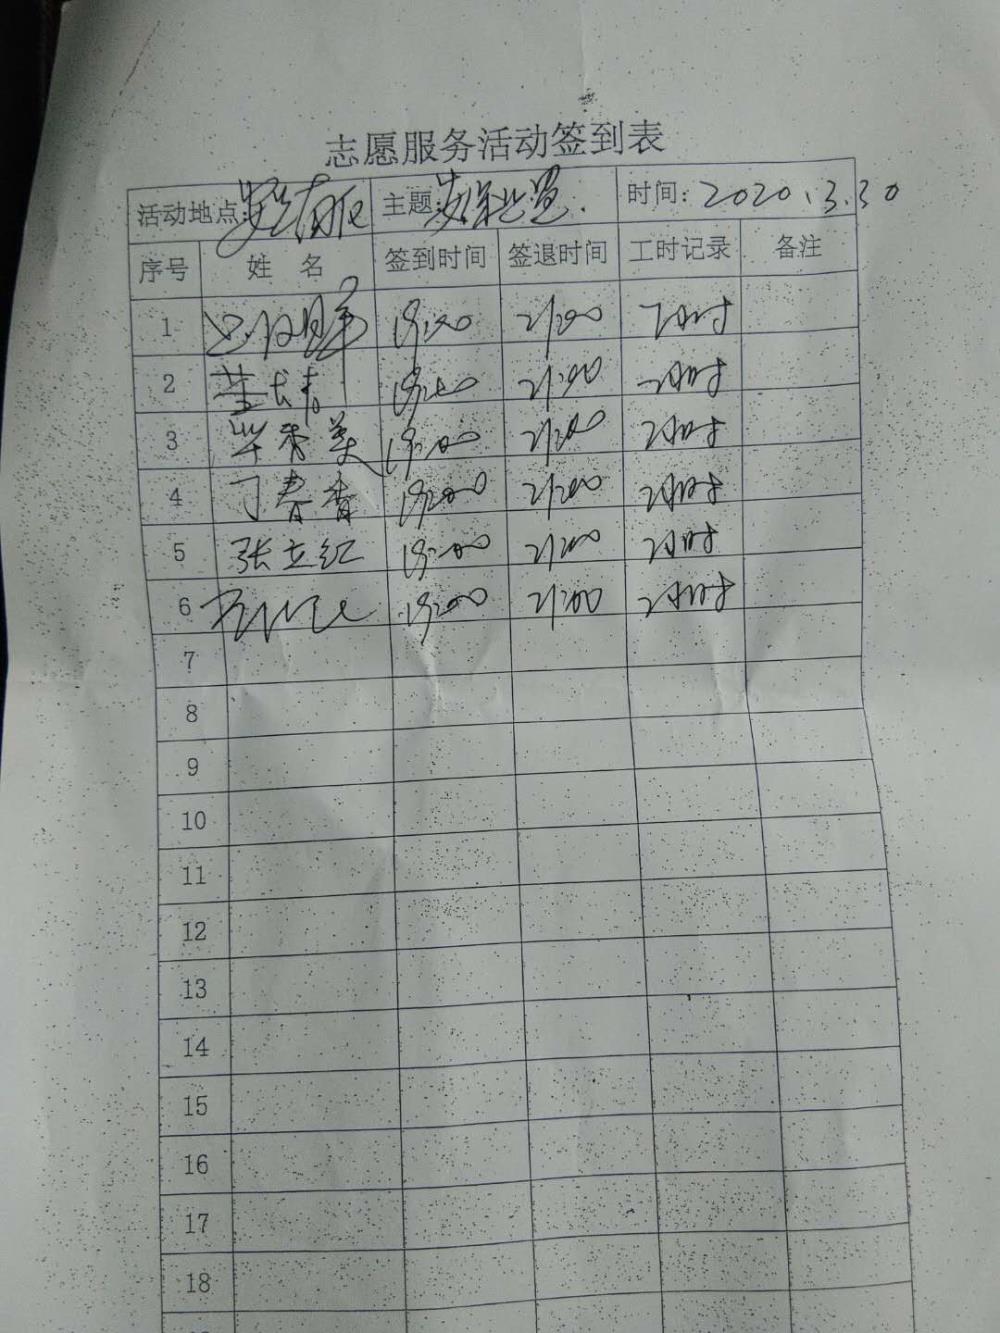 志愿服务活动签到表
活动地点: 主题: 时间: 2020.3.30
序号 姓 名 签到时间 签退时间 工时记录 备注
1 19:00 21:00 2小时
2 董长青 19:00 21:00 2小时
3 毕秀美 19:00 21:00 2小时
4 丁春香 19:00 21:00 2小时
5 张立红 19:00 21:00 2小时
6 19:00 21:00 2小时
7
8
9
10
11
12
13
14
15
16
17
18